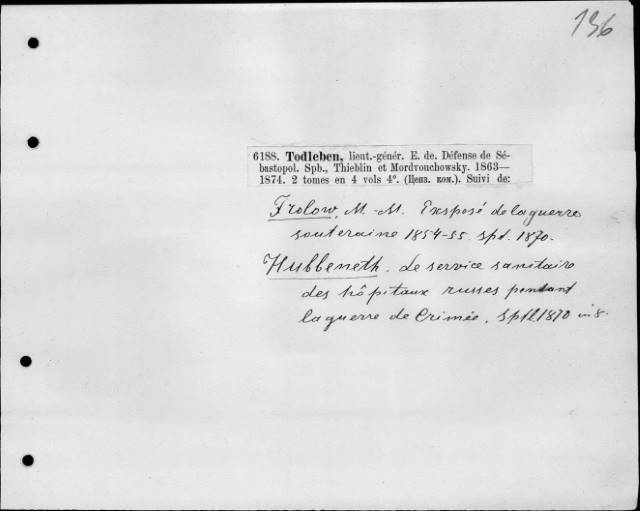 136
6188. Todleben, lieut.-génér. E. de. Défense de Sé-
bastopol. Spb., Thieblin et Mordvouchowsky. 1863—
1874. 2 tomes en 4 vols 4°. (Ценз. ком.). Suivi de:
Frolow, M.-M. Exsposé de la guerre
souteraine 1854-55. Spt. 1870.
Hubbeneth. Le service sanitaire
des hôpitaux russes pendant
la guerre de Crimée. 1870 in 8.